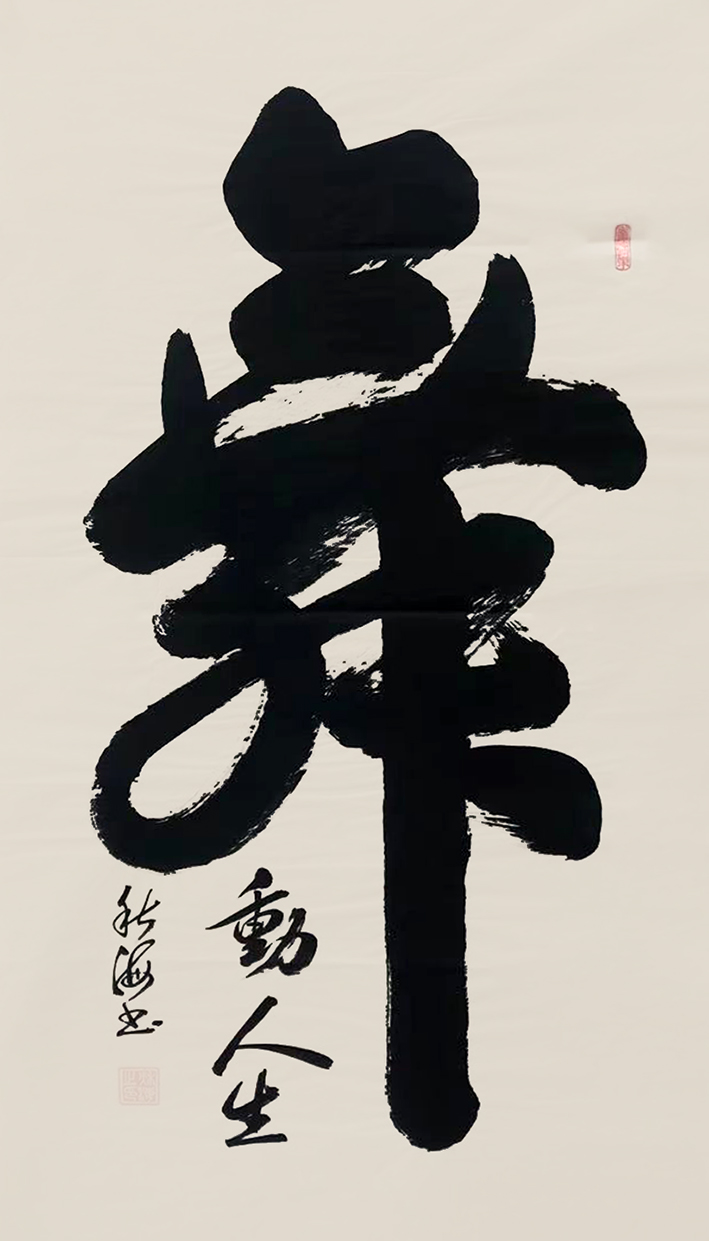 舞
動人生
秋海书